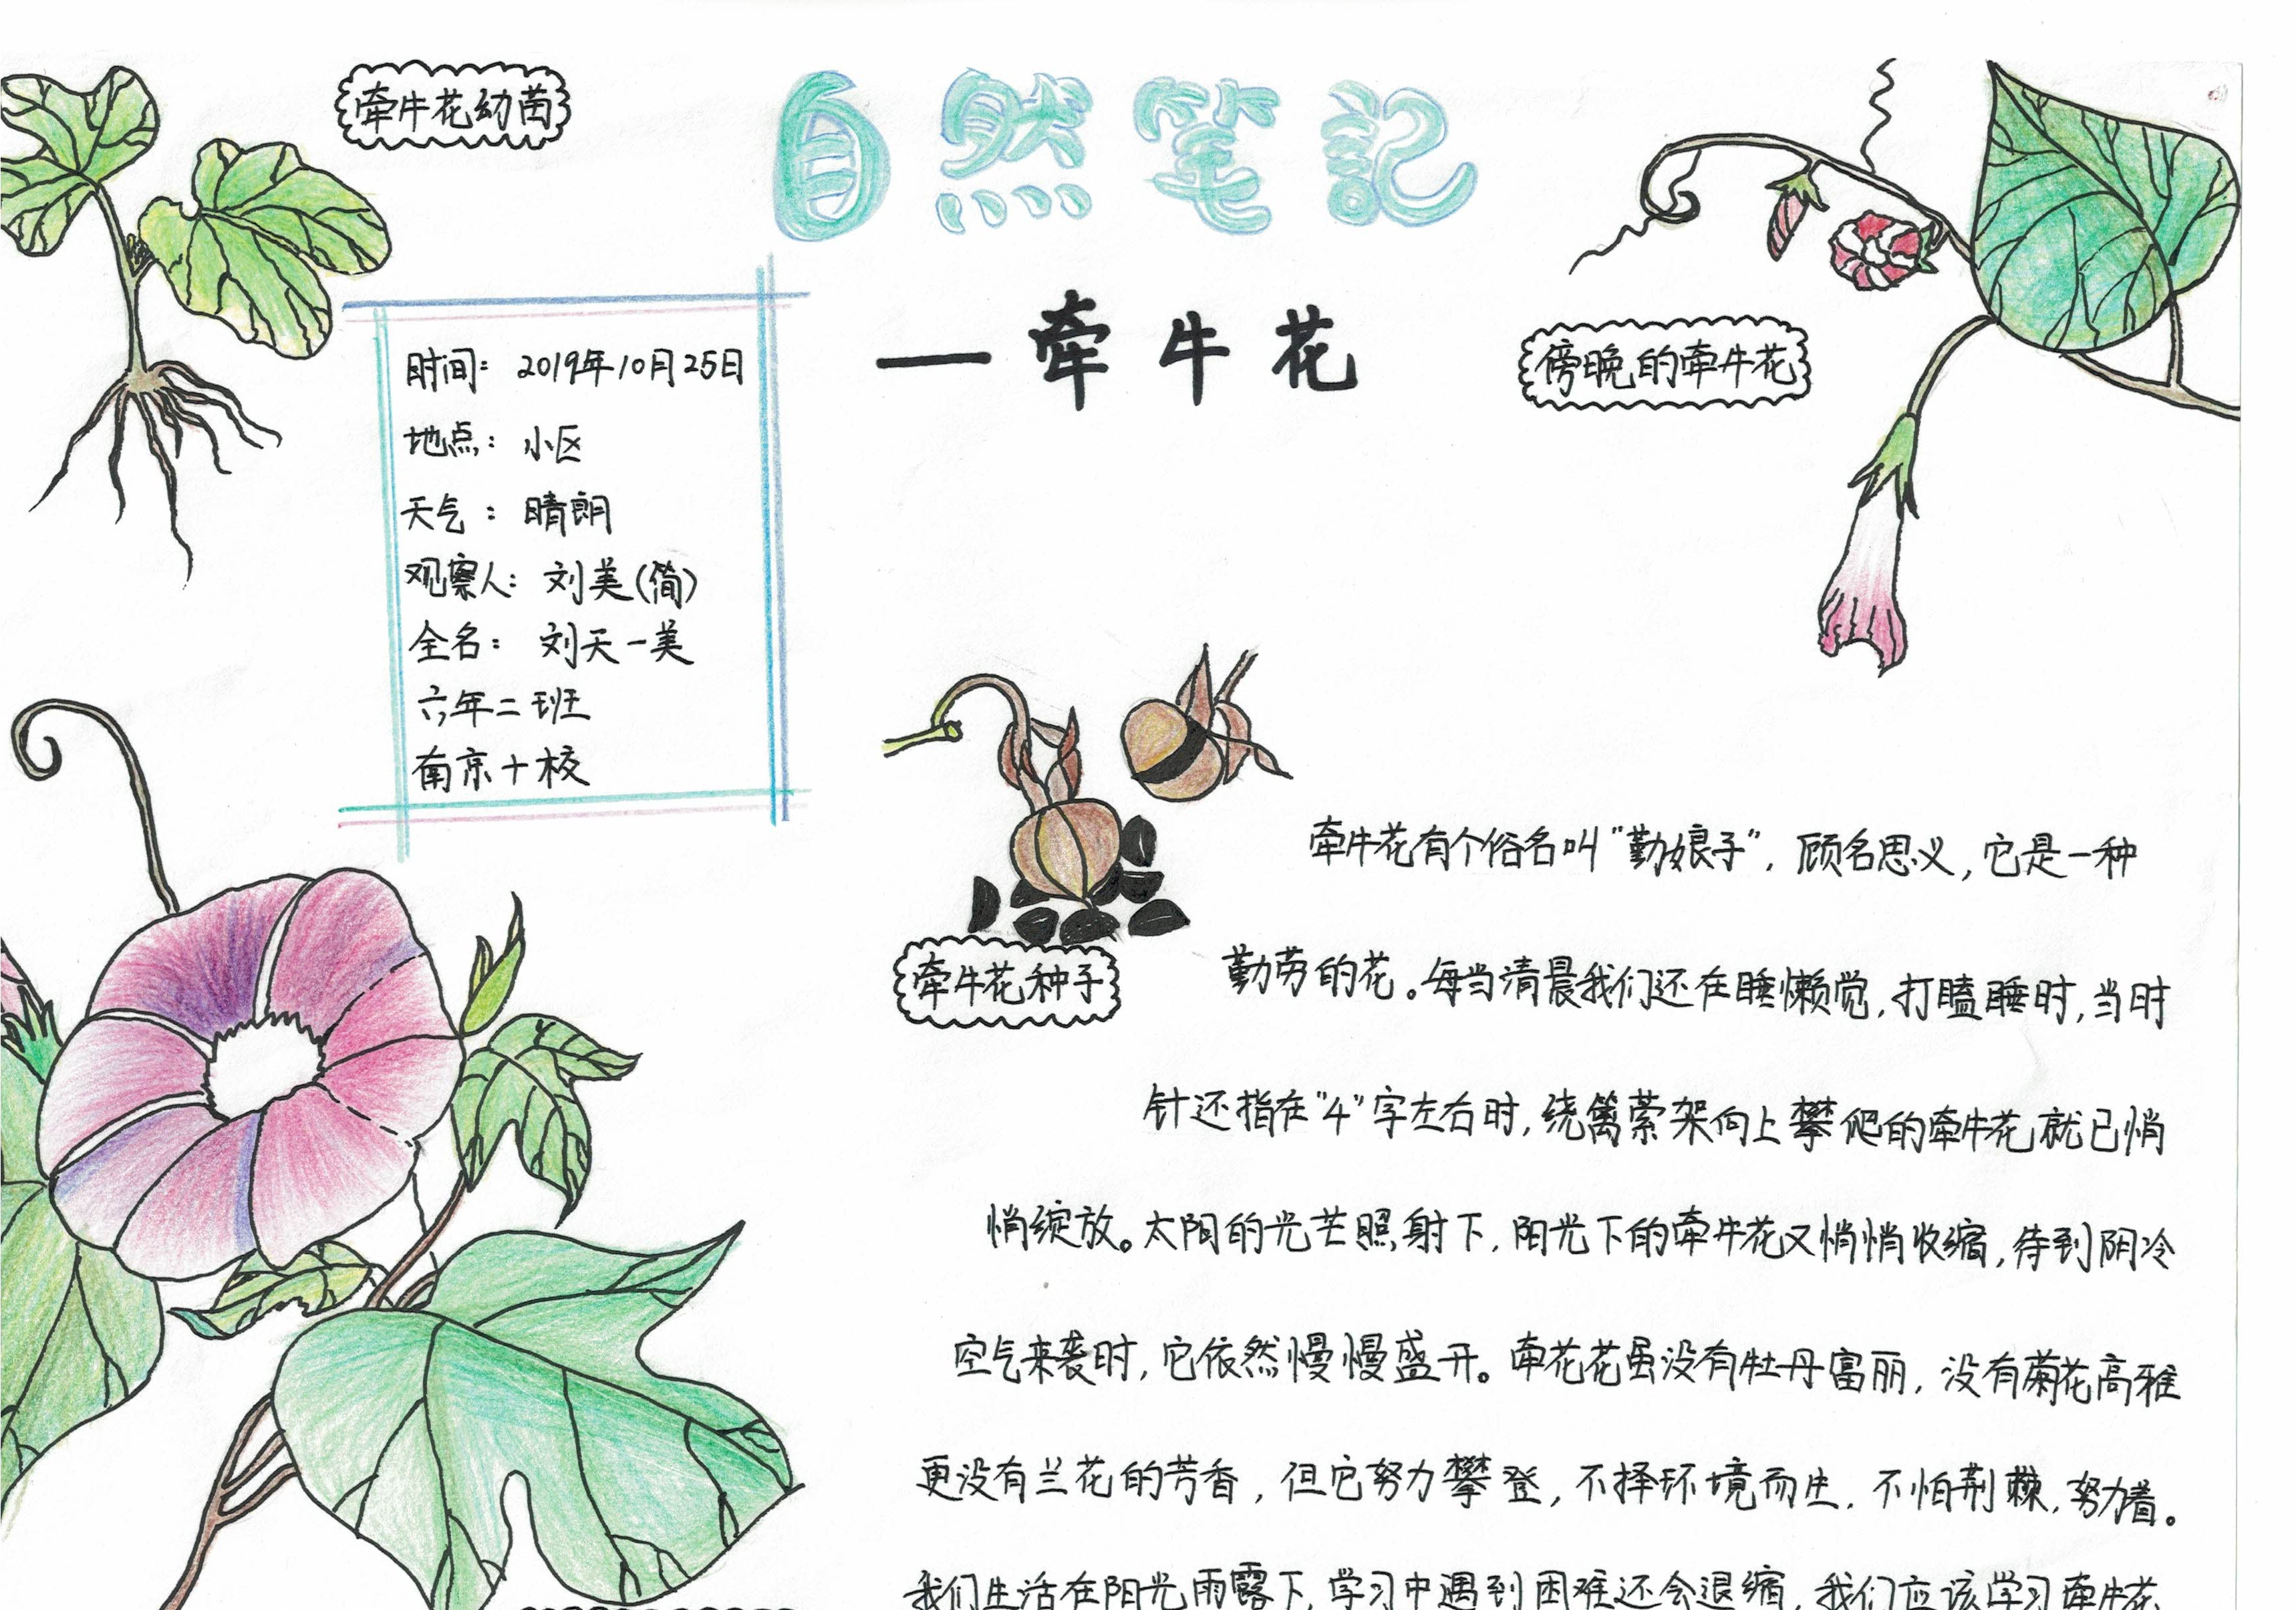 牵牛花幼苗
自然笔記
—牵牛花
傍晚的牵牛花
时间：2019年10月25日
地点：小区
天气：晴朗
观察人：刘美(简)
全名：刘天一美
六年二班
南京十校
牵牛花种子
牵牛花有个俗名叫“勤娘子”，顾名思义，它是一种
勤劳的花。每当清晨我们还在睡懒觉，打瞌睡时，当时
针还指在“4”字左右时，绕篱萦架向上攀爬的牵牛花就已悄
悄绽放。太阳的光芒照射下，阳光下的牵牛花又悄悄收缩，待到阴冷
空气来袭时，它依然慢慢盛开。牵花花虽没有牡丹富丽，没有菊花高雅
更没有兰花的芳香，但它努力攀登，不择环境而生，不怕荆棘，努力着。
我们生活在阳光雨露下，学习中遇到困难还会退缩，我们应该学习牵牛花